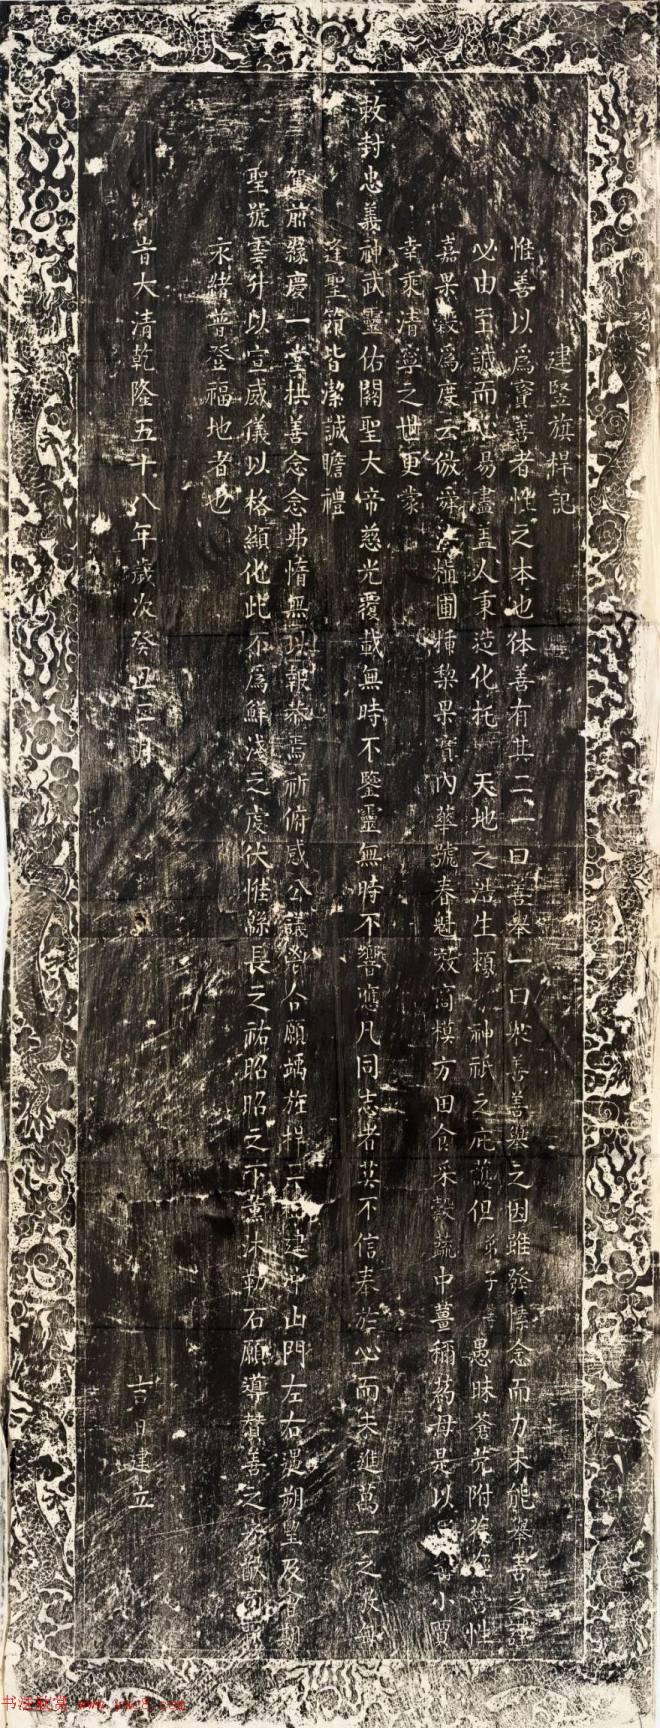 建竪旗桿記
惟善以爲寳善者性之本也体善有其二一曰善舉一曰於善善與之因雖發悼念而力未能舉善之
必由至誠而心易盡盖人秉造化托 天地之浩生頼 神祇之庇護但弟子等愚昧蒼茫附 性
嘉果穀爲度云倣舜 植圃種梨果實內華號春魁效商模方田食采穀蔬中薑稱葯母是以 小貿
幸乘清寧之世更蒙
敕封忠義神武靈佑關聖大帝慈光覆載無時不鑒靈無時不響應凡同志者莫不信奉於心而未進萬一之 無
逢聖節皆潔誠瞻禮
駕前緣慶一堂栱善念念弗惰無以報恭焉祈俯感公議 仝願竪旌桿二 建 山門左右遇朔望及會期
聖號雲升以宣威儀以格顯化此不爲鮮淺之虔伏惟綿長之祐昭昭之下薰沐勒石願導賛善之
永緒普登福地者也
旹大清乾隆五十八年歲次癸丑三月 吉日建立
书法欣赏 www.yac8.com